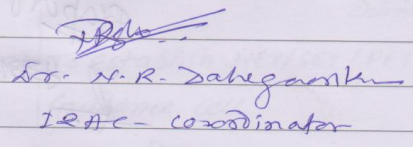 Dr. N. R. Dahegaonkar
IQAC - Coordinator